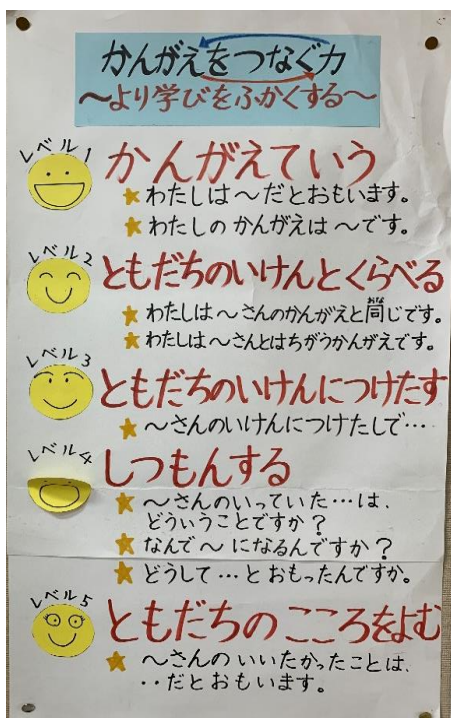 かんがえをつなぐ力
～より学びをふかくする～
レベル1
かんがえていう
★わたしは～だとおもいます。
★わたしの かんがえは～です。
レベル2
ともだちのいけんとくらべる
★わたしは～さんのかんがえと同じです。
おな
★わたしは～さんとはちがうかんがえです。
レベル3
ともだちのいけんにつけたす
★～さんのいけんにつけたしで…
レベル4
しつもんする
★～さんのいっていた…は、
どういうことですか？
★なんで～になるんですか？
★どうして…とおもったんですか。
レベル5
ともだちの こころをよむ
★～さんの いいたかったことは、
‥だとおもいます。